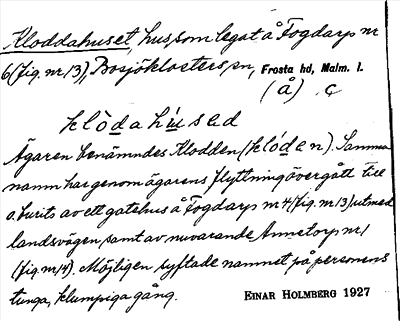 Kloddahuset, hus, som legat å Fogdarp nr
6 (fig. nr 13), Bosjöklosters sn, Frosta hd, Malm. l.
(å) c
klòdahúsəd
Ägaren benämndes Klodden (klóden). Samma
namn har genom ägarens flyttning övergått till
o. burits av ett gatehus å Fogdarp nr 4 (fig. nr 13) utmed
landsvägen, samt av nuvarande Annetorp nr 1
(fig. nr 14). Möjligen syftade namnet på personens
tunga, klumpiga gång.
EINAR HOLMBERG 1927